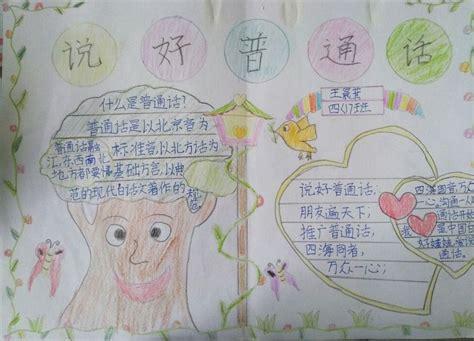 说好普通话
王晨
四(1)班
什么是普通话?
普通话是以北京音为
标准音以北方话为
基础方言以典
范的现代白话文著作的规范
普通话融
汇东西南北
地方都要懂
说好普通话,
朋友遍天下;
推广普通话,
四海同音,
万众一心;
四海同音万众
一心,沟通